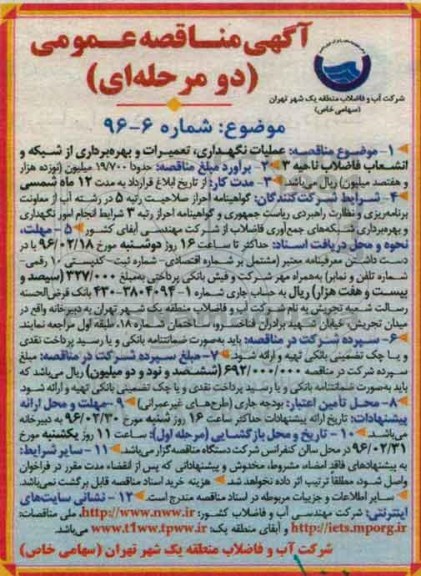 آگهی مناقصه عمومی
(دو مرحله‌ای)
شرکت آب و فاضلاب منطقه یک شهر تهران
(سهامی خاص)
موضوع: شماره ۶-۹۶
۱- موضوع مناقصه: عملیات نگهداری، تعمیرات و بهره‌برداری از شبکه و
انشعاب فاضلاب ناحیه ۳ ۲- برآورد مبلغ مناقصه: حدودا ۱۹/۷۰۰ میلیون (نوزده هزار
و هفتصد میلیون) ریال می‌باشد. ۳- مدت کار: از تاریخ ابلاغ قرارداد به مدت ۱۲ ماه شمسی
۴- شرایط شرکت‌کنندگان: گواهینامه احراز صلاحیت رتبه ۵ در رشته آب از معاونت
برنامه‌ریزی و نظارت راهبردی ریاست جمهوری و گواهینامه احراز رتبه ۳ شرایط انجام امور نگهداری
و بهره‌برداری شبکه‌های جمع‌آوری فاضلاب از شرکت مهندسی آبفای کشور ۵- مهلت،
نحوه و محل دریافت اسناد: حداکثر تا ساعت ۱۶ روز دوشنبه مورخ ۹۶/۰۲/۱۸ با در
دست داشتن معرفینامه معتبر (مشتمل بر شماره اقتصادی- شماره ثبت- کدپستی ۱۰ رقمی -
شماره تلفن و نمابر) به‌همراه مهر شرکت و فیش بانکی پرداختی به‌مبلغ ۳۲۷/۰۰۰ (سیصد و
بیست و هفت هزار) ریال به حساب جاری شماره ۱-۳۸۰۴۰۹۴-۴۳۰ بانک قرض‌الحسنه
رسالت شعبه تجریش به نام شرکت آب و فاضلاب منطقه یک شهر تهران به دبیرخانه واقع در
میدان تجریش، خیابان شهید برادران فناخسرو، ساختمان شماره ۱۸، طبقه اول مراجعه نمایند.
۶- سپرده شرکت در مناقصه: باید به‌صورت ضمانتنامه بانکی و یا رسید پرداخت نقدی
و یا چک تضمینی بانکی تهیه و ارائه شود. ۷- مبلغ سپرده شرکت در مناقصه: مبلغ
سپرده شرکت در مناقصه ۶۹۲/۰۰۰/۰۰۰ (ششصد و نود و دو میلیون) ریال می‌باشد که
باید به‌صورت ضمانتنامه بانکی و یا رسید پرداخت نقدی و یا چک تضمینی بانکی تهیه و ارائه شود
۸- محل تأمین اعتبار: بودجه جاری (طرح‌های غیرعمرانی) ۹- مهلت و محل ارائه
پیشنهادات: تاریخ ارائه پیشنهادات حداکثر ساعت ۱۶ روز شنبه مورخ ۹۶/۰۲/۳۰ به دبیرخانه
می‌باشد. ۱۰- تاریخ و محل بازگشایی (مرحله اول): ساعت ۱۱ روز یکشنبه مورخ
۹۶/۰۲/۳۱ در محل سالن کنفرانس شرکت دستگاه مناقصه‌گزار می‌باشد ۱۱- سایر شرایط:
به پیشنهادهای فاقد امضاء، مشروط، مخدوش و پیشنهاداتی که پس از انقضاء مدت مقرر در فراخوان
واصل شود، مطلقاً ترتیب اثر داده نخواهد شد. هزینه خرید اسناد مناقصه قابل برگشت نمی‌باشد.
سایر اطلاعات و جزییات مربوطه در اسناد مناقصه مندرج است. ۱۲- نشانی سایت‌های
اینترنتی: شرکت مهندسی آب و فاضلاب کشور: http://www.nww.ir، ملی مناقصات:
http://iets.mporg.ir و آبفای منطقه یک: www.t1ww.tpww.ir می‌باشد.
شرکت آب و فاضلاب منطقه یک شهر تهران (سهامی خاص)